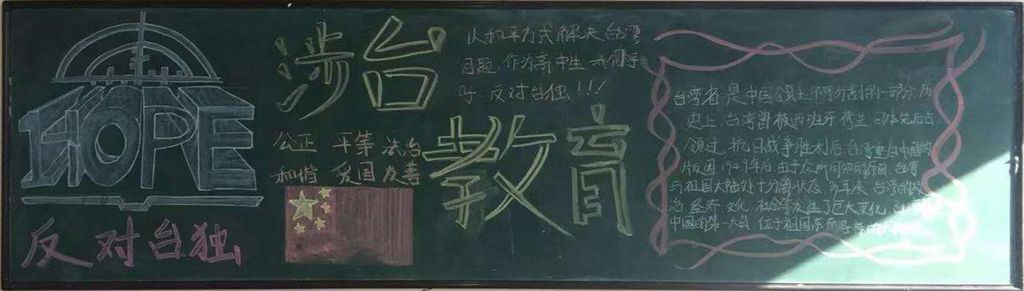 HOPE
反对台独
涉台
教育
公正 平等 法治
和谐 爱国 友善
以和平方式解决台湾
问题，作为高中生 我们
反对台独！！！
台湾省是中国领土不可分割的一部分 历
史上 台湾曾被西班牙 荷兰 日本先后占
领过 抗日战争胜利后 台湾
版图 1949年后由于众所周知的原因 台湾
与祖国大陆处于分离状态
治 经济 文化 社会 发生了巨大变化
中国的第一大岛 位于祖国东南